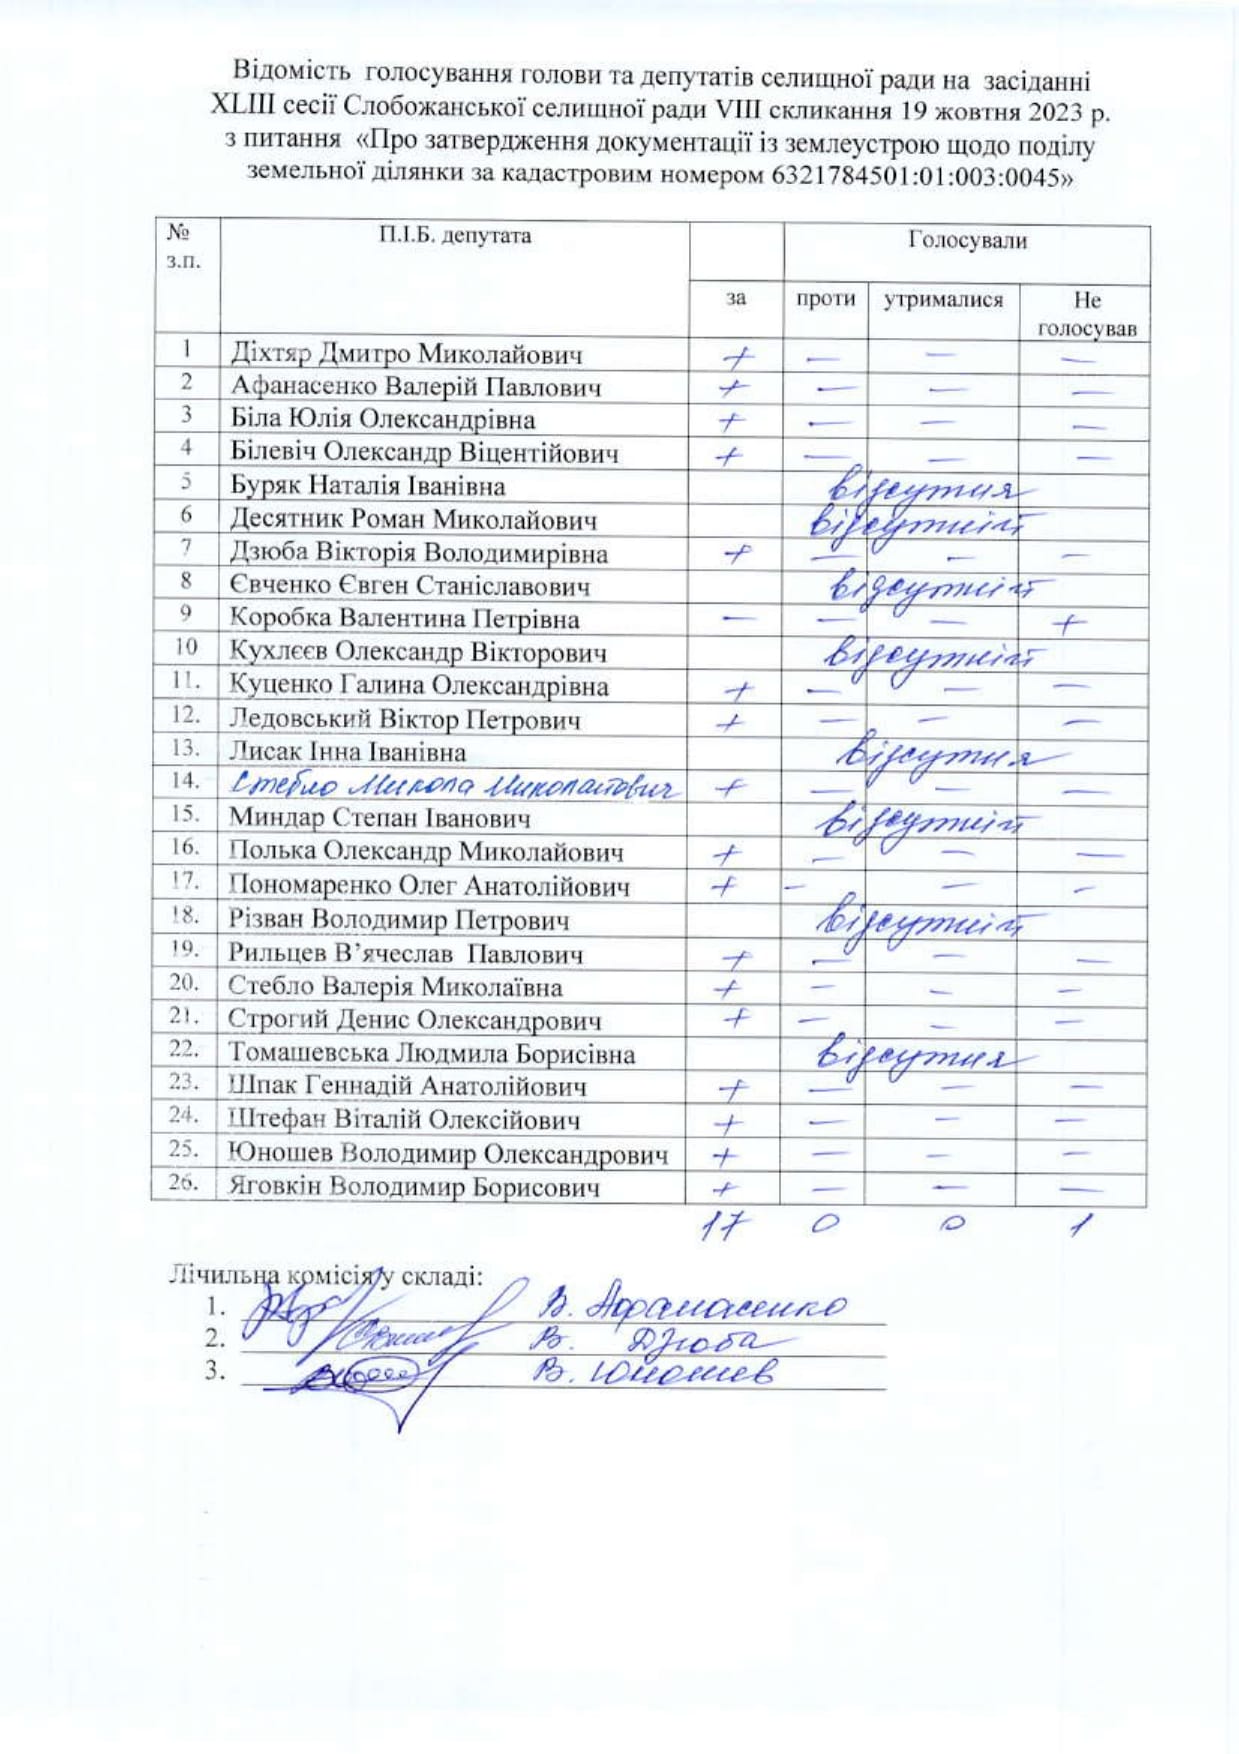 Відомість голосування голови та депутатів селищної ради на засіданні
XLIII сесії Слобожанської селищної ради VIII скликання 19 жовтня 2023 р.
з питання «Про затвердження документації із землеустрою щодо поділу
земельної ділянки за кадастровим номером 6321784501:01:003:0045»
№ з.п. П.І.Б. депутата Голосували
за проти утрималися Не голосував
1 Діхтяр Дмитро Миколайович + — — —
2 Афанасенко Валерій Павлович + — — —
3 Біла Юлія Олександрівна + — — —
4 Білевіч Олександр Віцентійович + — — —
5 Буряк Наталія Іванівна відсутня
6 Десятник Роман Миколайович відсутній
7 Дзюба Вікторія Володимирівна + — — —
8 Євченко Євген Станіславович відсутній
9 Коробка Валентина Петрівна — — — +
10 Кухлєєв Олександр Вікторович відсутній
11. Куценко Галина Олександрівна + — — —
12. Ледовський Віктор Петрович + — — —
13. Лисак Інна Іванівна відсутня
14. Стебло Микола Миколайович + — — —
15. Миндар Степан Іванович відсутній
16. Полька Олександр Миколайович + — — —
17. Пономаренко Олег Анатолійович + — — —
18. Різван Володимир Петрович відсутній
19. Рильцев В’ячеслав Павлович + — — —
20. Стебло Валерія Миколаївна + — — —
21. Строгий Денис Олександрович + — — —
22. Томашевська Людмила Борисівна відсутня
23. Шпак Геннадій Анатолійович + — — —
24. Штефан Віталій Олексійович + — — —
25. Юношев Володимир Олександрович + — — —
26. Яговкін Володимир Борисович + — — —
17 0 0 1
Лічильна комісія у складі:
1. В. Афанасенко
2. В. Дзюба
3. В. Юношев